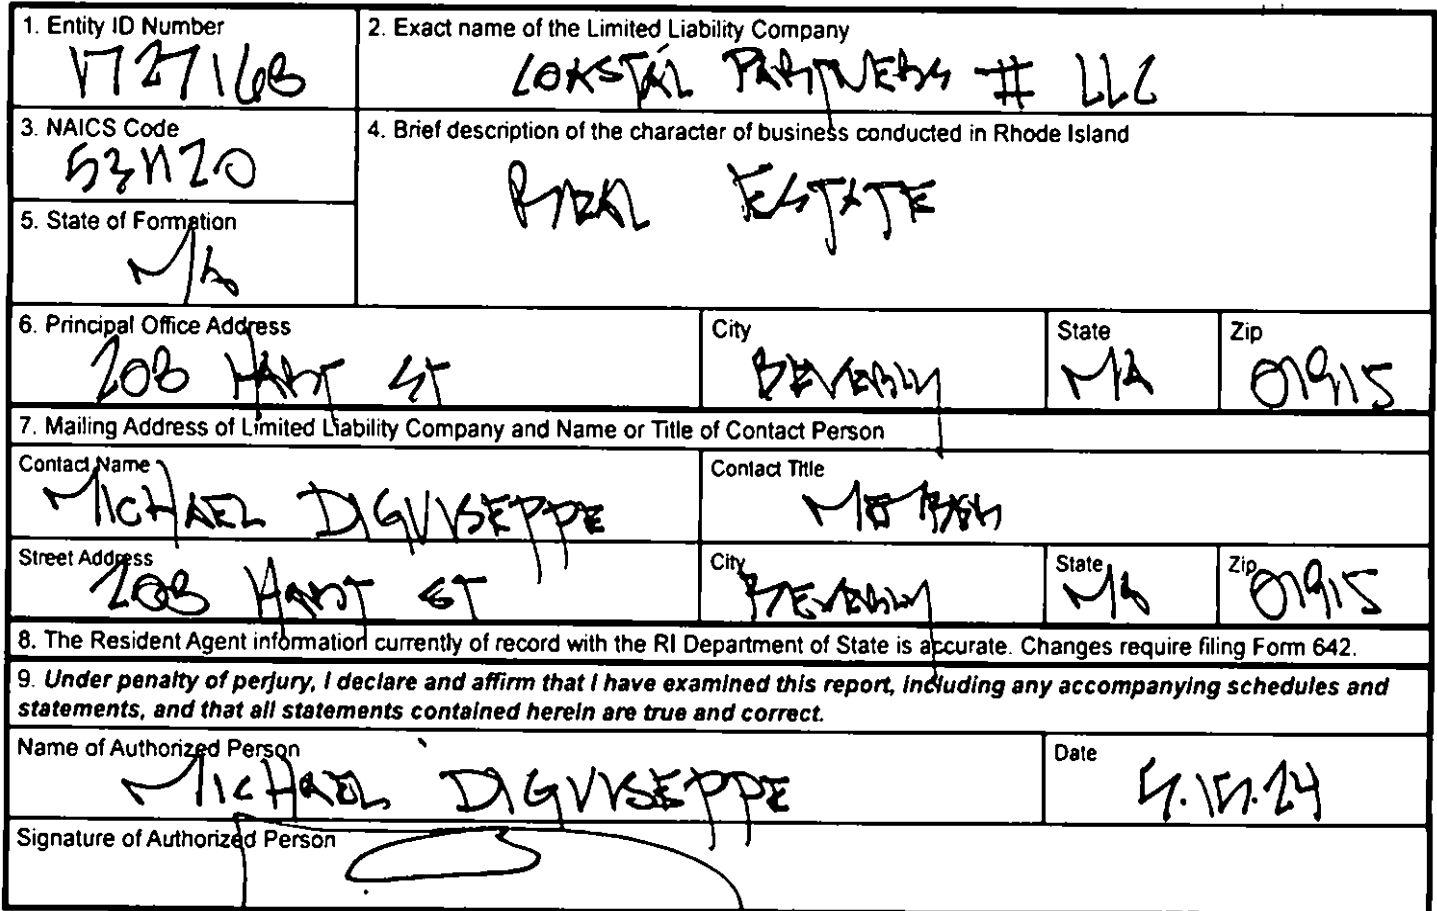 1. Entity ID Number
1727168
2. Exact name of the Limited Liability Company
LOKSTAL PARTNERS II LLC
3. NAICS Code
531120
4. Brief description of the character of business conducted in Rhode Island
REAL ESTATE
5. State of Formation
MA
6. Principal Office Address
208 HART ST
City
BEVERLY
State
MA
Zip
01915
7. Mailing Address of Limited Liability Company and Name or Title of Contact Person
Contact Name
MICHAEL DIGUISEPPE
Contact Title
MEMBER
Street Address
208 HART ST
City
BEVERLY
State
MA
Zip
01915
8. The Resident Agent information currently of record with the RI Department of State is accurate. Changes require filing Form 642.
9. Under penalty of perjury, I declare and affirm that I have examined this report, including any accompanying schedules and
statements, and that all statements contained herein are true and correct.
Name of Authorized Person
MICHAEL DIGUISEPPE
Date
5.15.24
Signature of Authorized Person